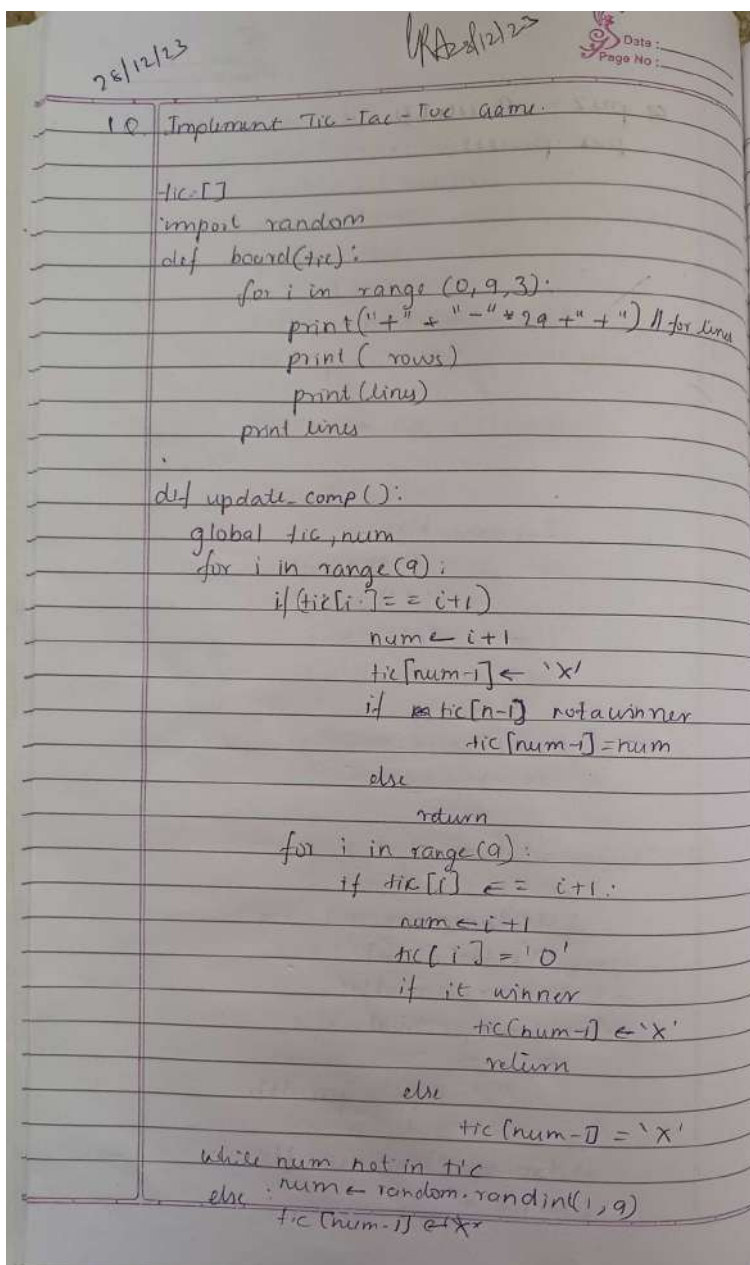 28/12/23
28/12/23
Date :
Page No :
10. Implement Tic-Tac-Toe Game.
tic=[]
import random
def board(tic):
for i in range (0,9,3):
print("+" + "-" * 29 +"+") // for lines
print ( rows)
print (lines)
print lines
def update_comp():
global tic, num
for i in range(9):
if (tic[i]== i+1)
num ← i+1
tic[num-1] ← 'X'
if tic[n-1] not a winner
tic[num-1]=num
else
return
for i in range(9):
if tic[i] == i+1:
num ← i+1
tic[i] = 'O'
if it winner
tic[num-1] ← 'X'
return
else
tic[num-1] = 'X'
while num not in tic
num ← random.randint(1,9)
else :
tic[num-1] ← 'X'